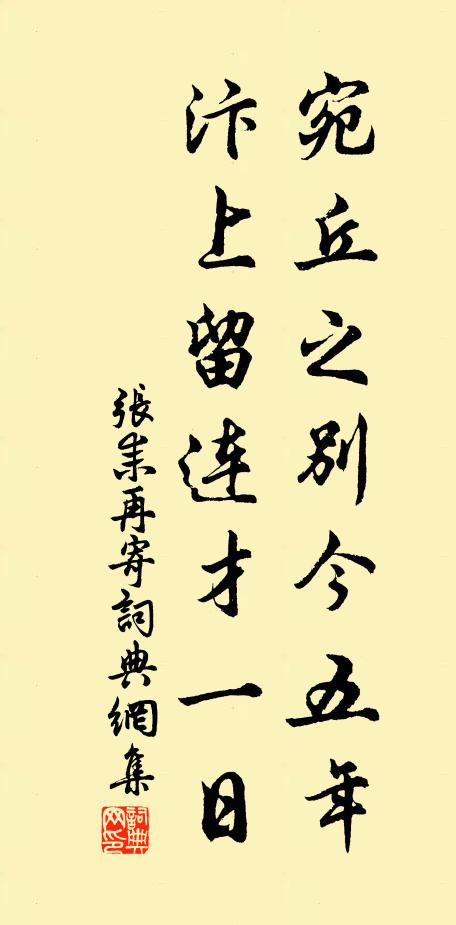 宛丘之别今五年
汴上留连才一日
張耒再寄詞典網集
詞典网印